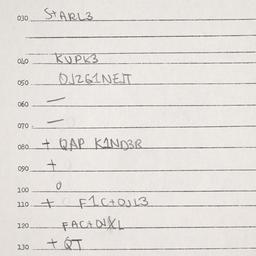 030 StARL3
060 KUPK3
050 OJ2G1NEJT
060 —
070 —
080 + QAP K1ND3R
090 +
100 o
110 + F1C+OJL3
120 FAC+OJXL
130 + QT